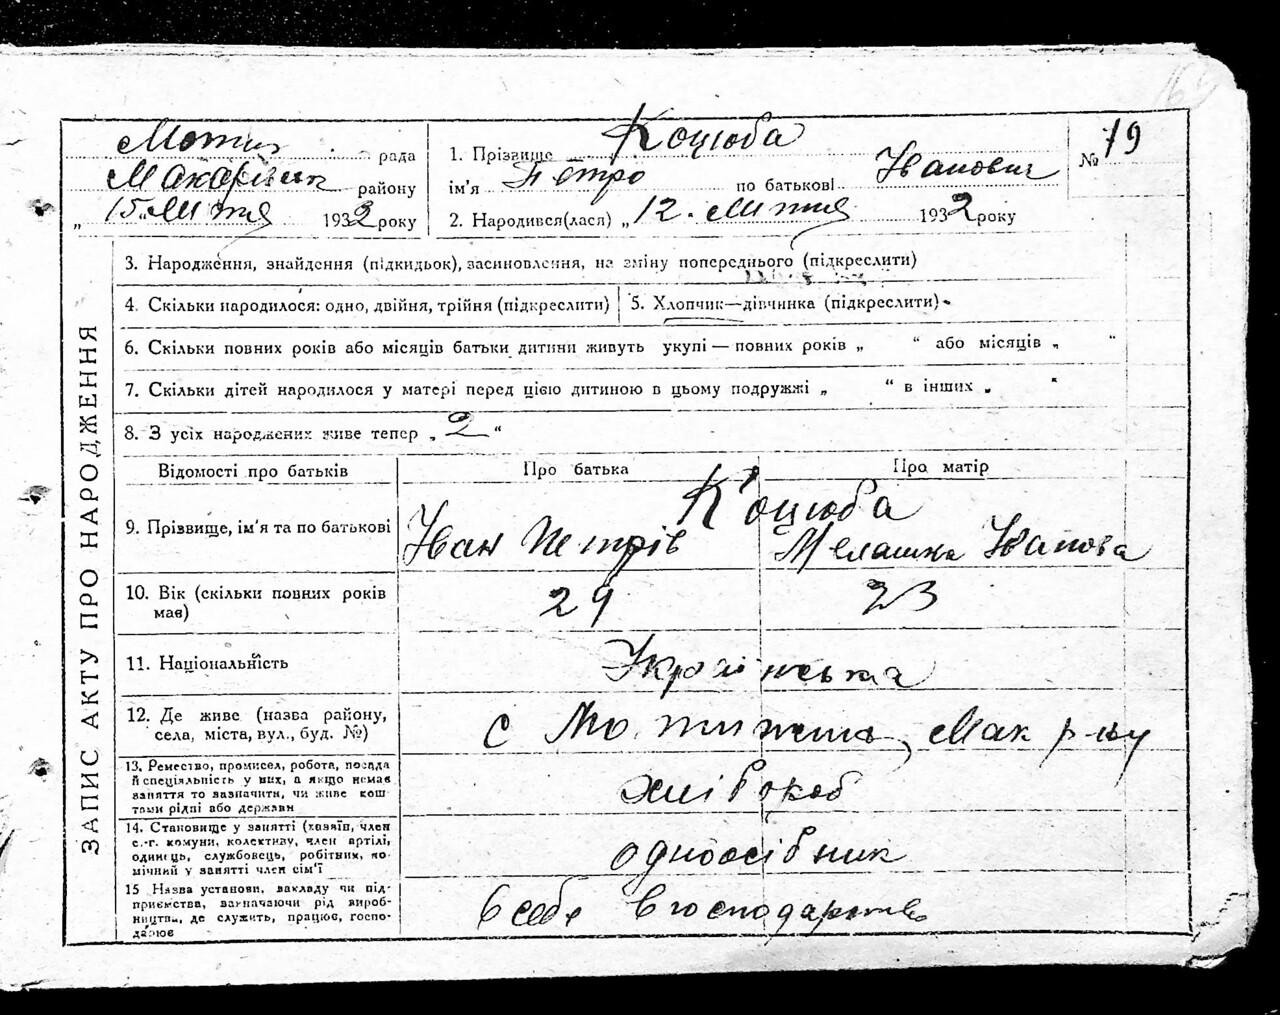 Мотиж рада
Макарівськ району
„ 15 „ Липня 1932 року
1. Прізвище Коцюба
ім'я Петро по батькові Іванович
2. Народився(лася) „ 12. Липня 1932 року
№ 79
ЗАПИС АКТУ ПРО НАРОДЖЕННЯ
3. Народження, знайдення (підкидьок), засиновлення, на зміну попереднього (підкреслити)
4. Скільки народилося: одно, двійня, трійня (підкреслити)
5. Хлопчик—дівчинка (підкреслити)
6. Скільки повних років або місяців батьки дитини живуть укупі — повних років „ “ або місяців „ “
7. Скільки дітей народилося у матері перед цією дитиною в цьому подружжі „ “ в інших „ “
8. З усіх народжених живе тепер „ 2 “
Відомості про батьків
Про батька
Про матір
9. Прізвище, ім'я та по батькові
Коцюба
Іван Петрів
Мелашка Іванова
10. Вік (скільки повних років
має)
29
23
11. Національність
Українська
12. Де живе (назва району,
села, міста, вул., буд. №)
с Мотижин, Мак р-ну
13. Ремество, промисел, робота, посада
й спеціяльність у них, а якщо немає
заняття то зазначити, чи живе кош
тами рідні або держави
хлібороб
14. Становище у занятті (хазяїн, член
с.-г. комуни, колективу, член артілі,
одинець, службовець, робітник, по
мічний у занятті член сім'ї
одноосібник
15 Назва установи, закладу чи під-
приємства, зазначаючи рід вироб-
ництва, де служить, працює, госпо-
дарює
В себе в господарстві